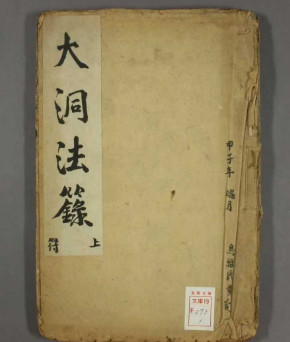 大洞法籙
上
符
甲子年 端月
文庫19
F 293
1